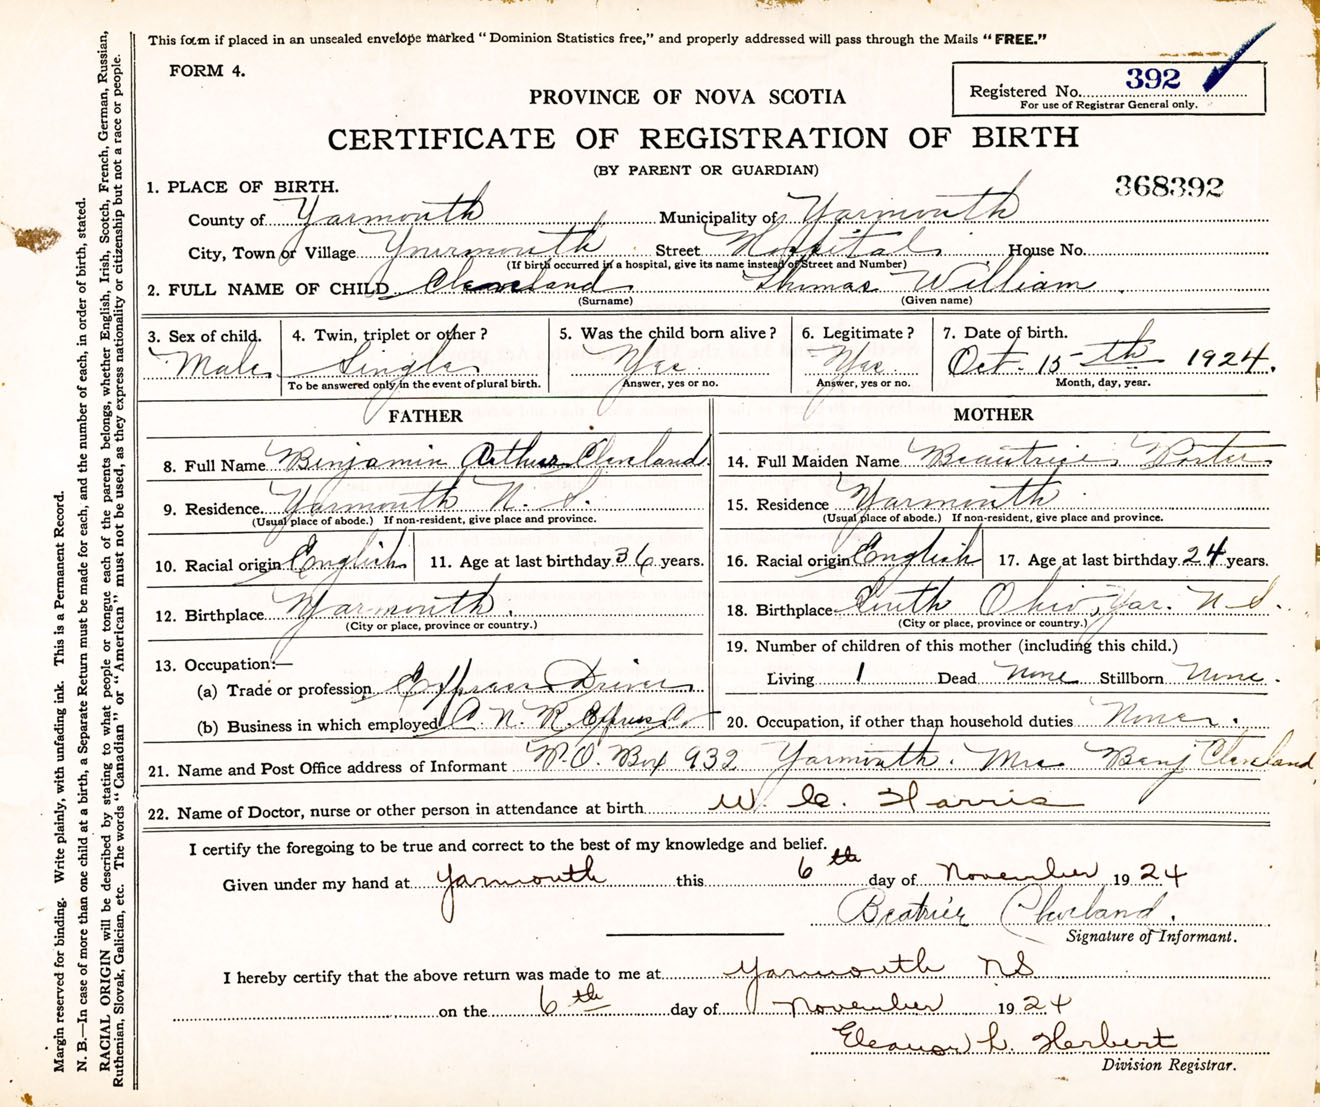 This form if placed in an unsealed envelope marked "Dominion Statistics free," and properly addressed will pass through the Mails "FREE."
FORM 4.
Registered No. 392
For use of Registrar General only.
PROVINCE OF NOVA SCOTIA
CERTIFICATE OF REGISTRATION OF BIRTH
(BY PARENT OR GUARDIAN)
368392
1. PLACE OF BIRTH.
County of Yarmouth Municipality of Yarmouth
City, Town or Village Yarmouth Street Hospital House No.
(If birth occurred in a hospital, give its name instead of Street and Number)
2. FULL NAME OF CHILD Cleveland Thomas William
(Surname) (Given name)
3. Sex of child. 4. Twin, triplet or other? 5. Was the child born alive? 6. Legitimate? 7. Date of birth.
Male Single Yes Yes Oct. 15th 1924.
To be answered only in the event of plural birth. Answer, yes or no. Answer, yes or no. Month, day, year.
FATHER
8. Full Name Benjamin Arthur Cleveland
9. Residence Yarmouth N. S.
(Usual place of abode.) If non-resident, give place and province.
10. Racial origin English 11. Age at last birthday 36 years.
12. Birthplace Yarmouth.
(City or place, province or country.)
13. Occupation:—
(a) Trade or profession Express Driver
(b) Business in which employed C. N. R. Express Co
MOTHER
14. Full Maiden Name Beautrice Porter
15. Residence Yarmouth
(Usual place of abode.) If non-resident, give place and province.
16. Racial origin English 17. Age at last birthday 24 years.
18. Birthplace South Ohio, Yar. N. S.
(City or place, province or country.)
19. Number of children of this mother (including this child.)
Living 1 Dead None Stillborn None.
20. Occupation, if other than household duties None.
21. Name and Post Office address of Informant P.O. Box 932 Yarmouth. Mrs Benj Cleveland
22. Name of Doctor, nurse or other person in attendance at birth W. C. Harris
I certify the foregoing to be true and correct to the best of my knowledge and belief.
Given under my hand at Yarmouth this 6th day of November 1924
Beatrice Cleveland.
Signature of Informant.
I hereby certify that the above return was made to me at Yarmouth NS
on the 6th day of November 1924
Eleanor L. Herbert
Division Registrar.
Margin reserved for binding. Write plainly, with unfading ink. This is a Permanent Record.
N. B.—In case of more than one child at a birth, a Separate Return must be made for each, and the number of each, in order of birth, stated.
RACIAL ORIGIN will be described by stating to what people or tongue each of the parents belongs, whether English, Irish, Scotch, French, German, Russian,
Ruthenian, Slovak, Galician, etc. The words "Canadian" or "American" must not be used, as they express nationality or citizenship but not a race or people.